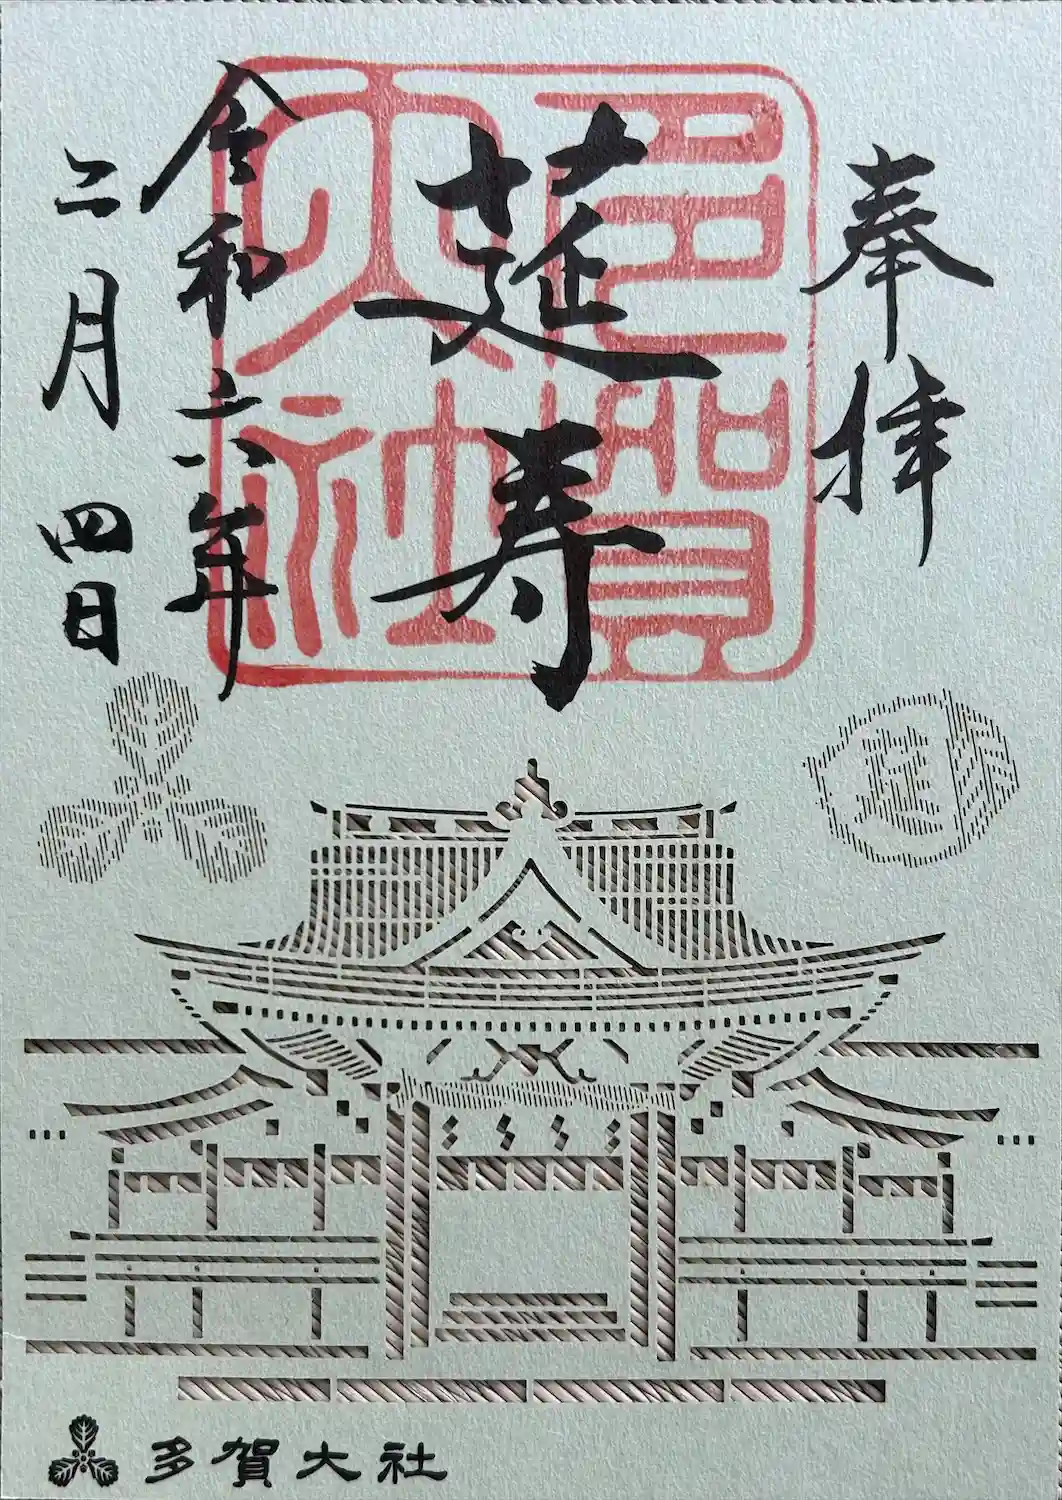 奉拝
延寿
令和六年
二月四日
多賀大社
多賀大社